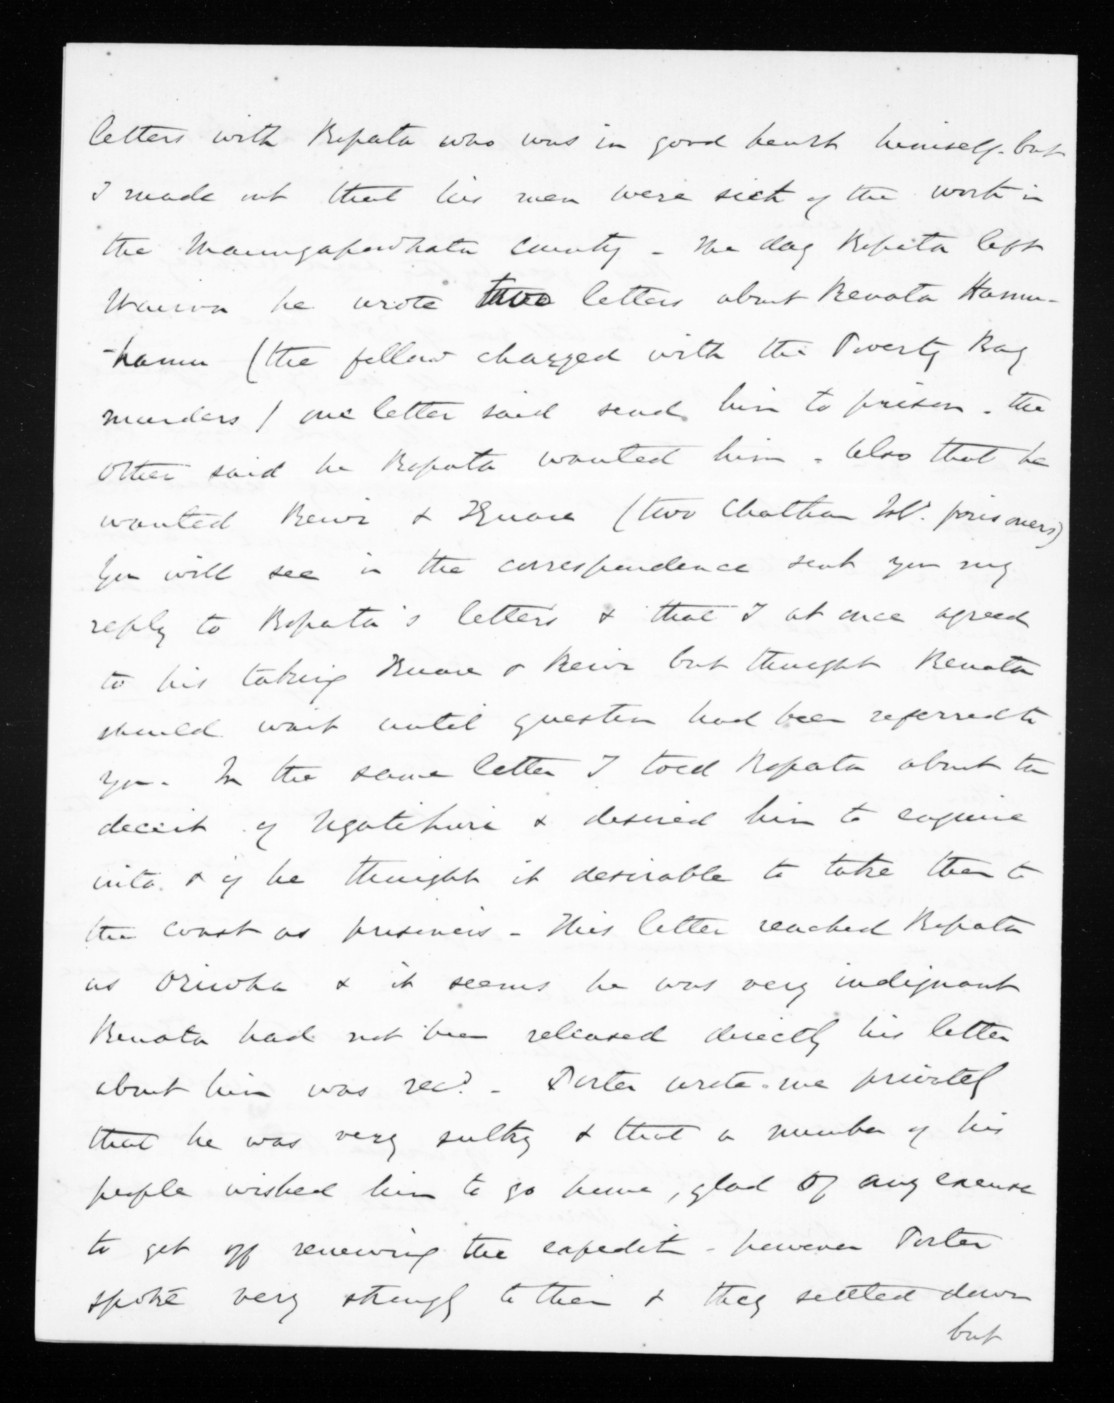 letters with Ropata who was in good heart himself. but
I made out that his men were sick of the work in
the Maungapowhatu County - The day Ropata left
Wairoa he wrote two letters about Renata Hamu-
-hamu (the fellow charged with the Poverty Bay
murders) one letter said send him to prison. the
other said he Ropata wanted him. Also that he
wanted Rewi & (two Chatham Isl. prisoners)
You will see in the correspondence sent you my
reply to Ropata's letters & that I at once agreed
to his taking & Rewi but thought Renata
should wait until question had been referred to
you. In the same letter I told Ropata about the
deceit of Ngatihuri & desired him to enquire
into & if he thought it desirable to take them to
the coast as prisoners - This letter reached Ropata
as & it seems he was very indignant
Renata had not been released directly his letter
about him was recd. - Porter wrote me privately
that he was very sulky & that a number of his
people wished him to go home, glad of any excuse
to get off renewing the expeditn - however Porter
spoke very strongly to them & they settled down
but